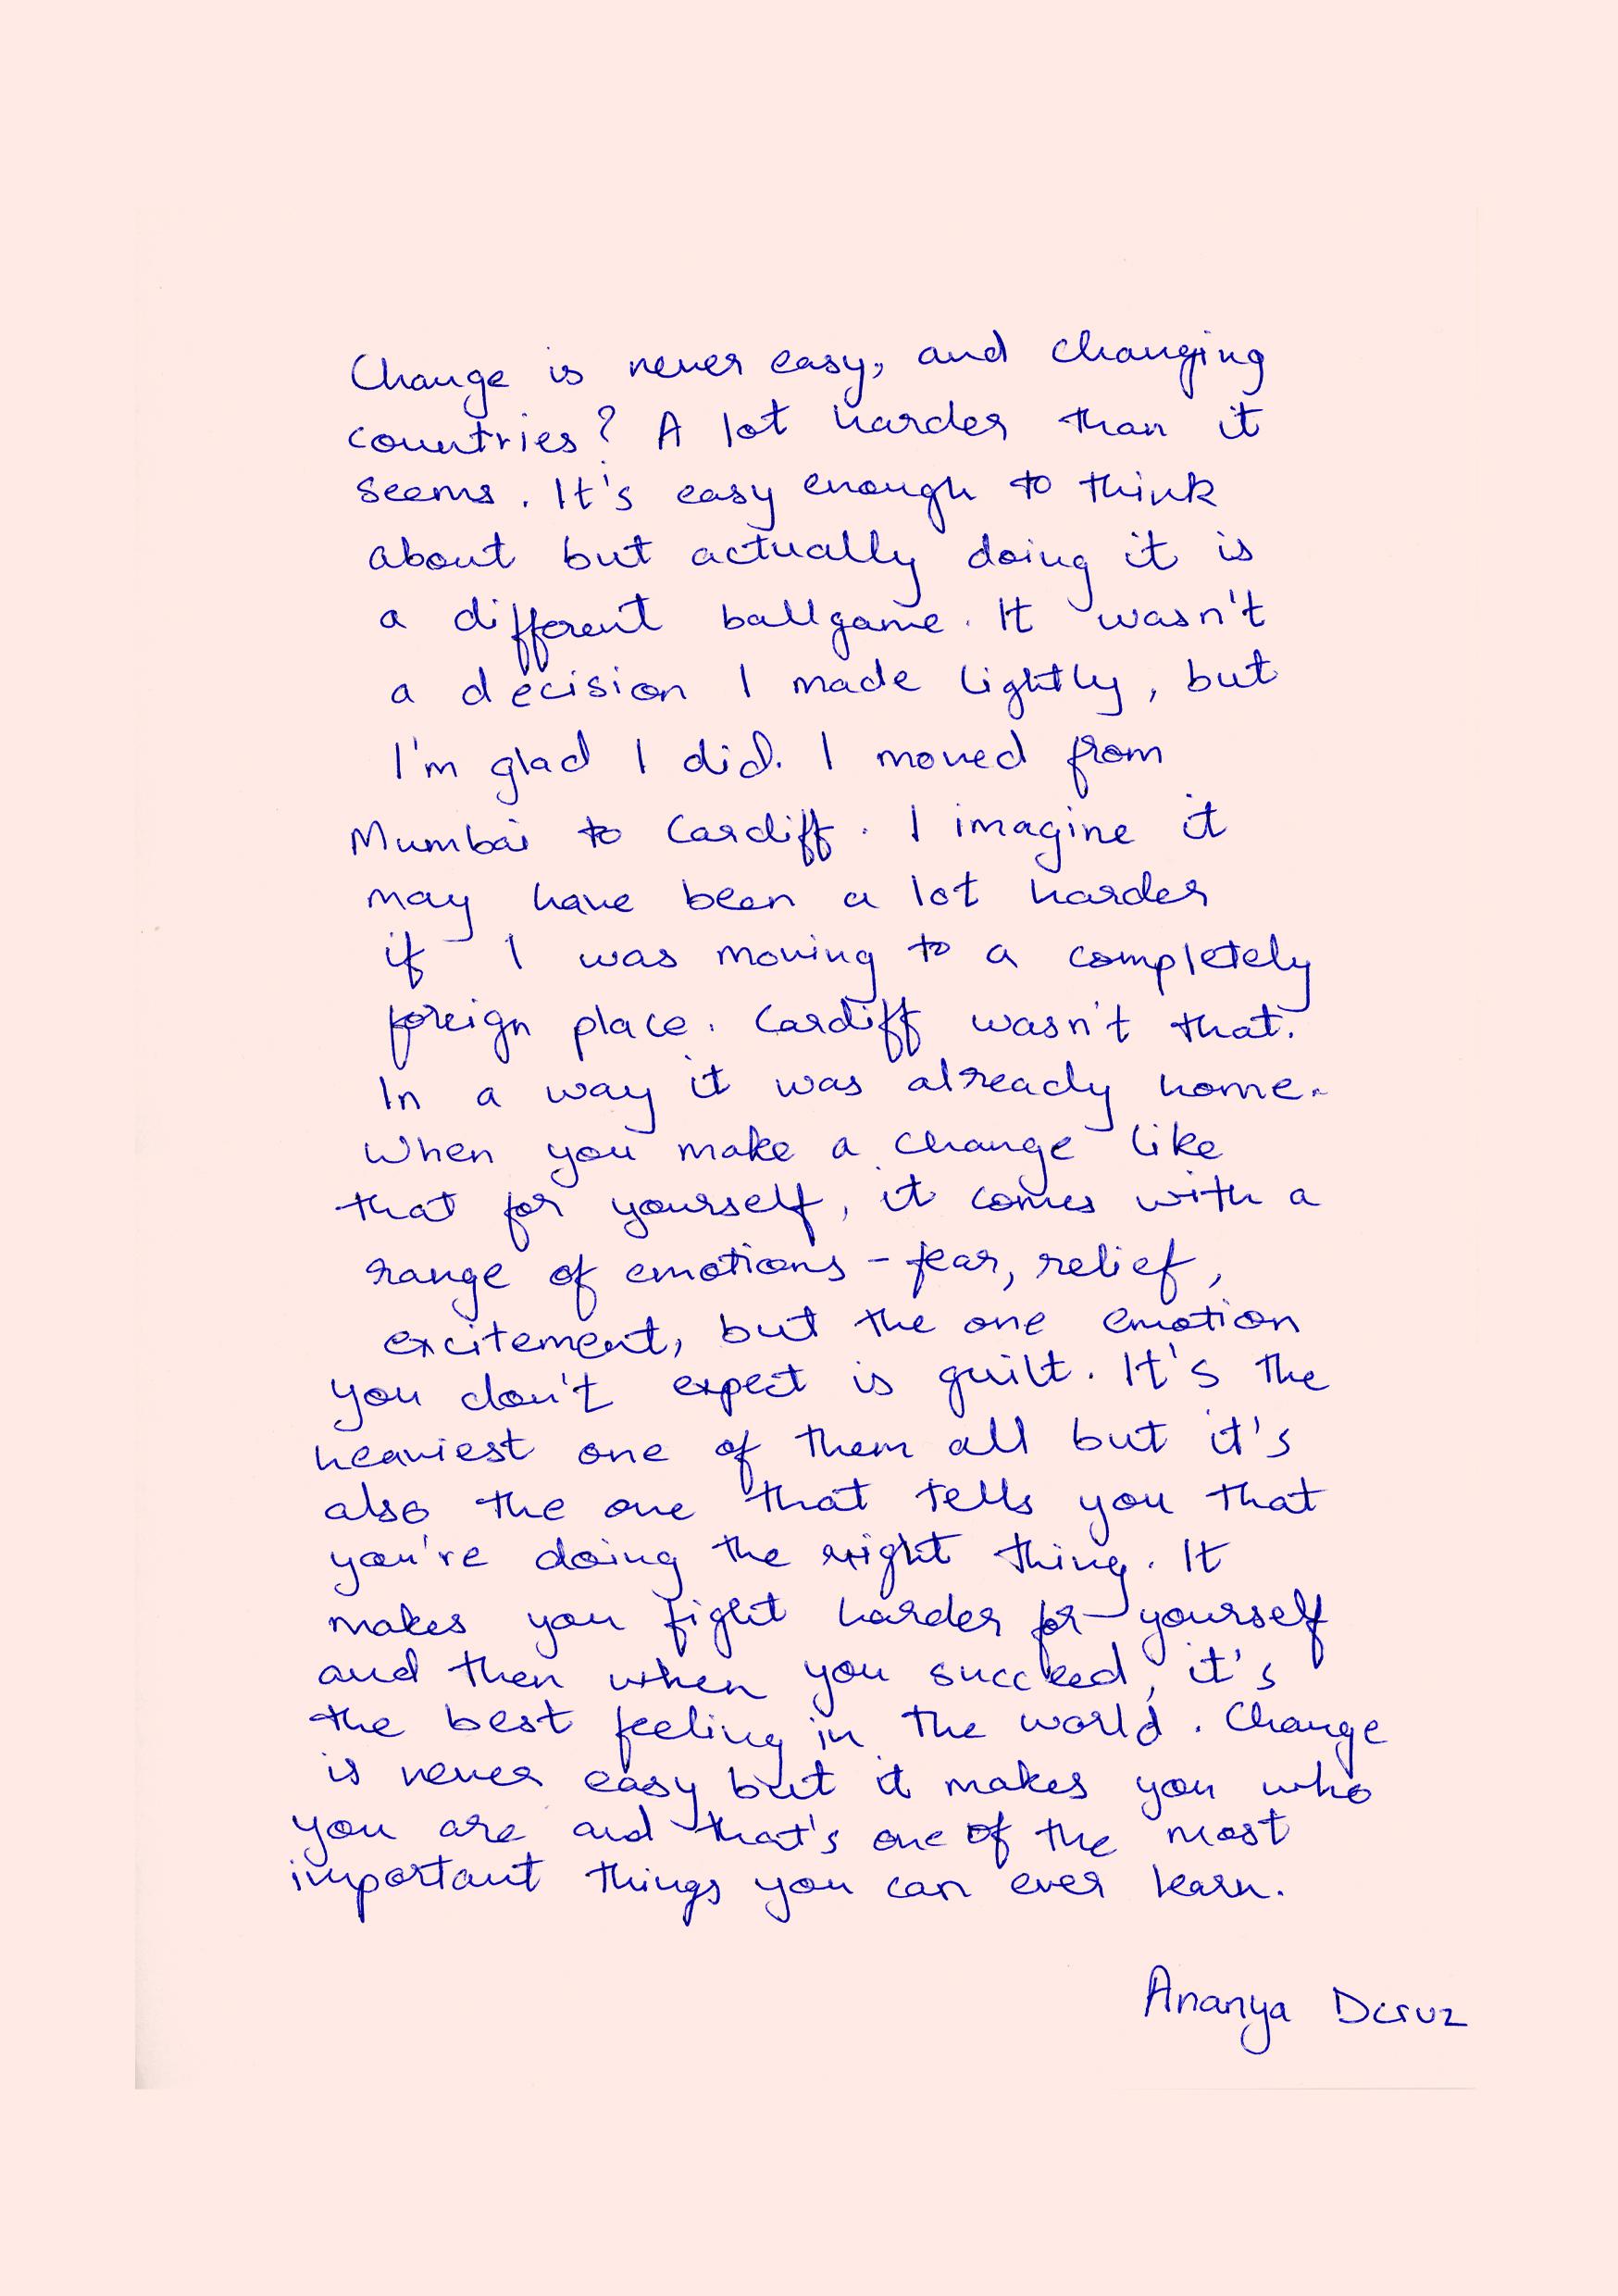 Change is never easy, and changing
countries? A lot harder than it
seems. It's easy enough to think
about but actually doing it is
a different ballgame. It wasn't
a decision I made lightly, but
I'm glad I did. I moved from
Mumbai to Cardiff. I imagine it
may have been a lot harder
if I was moving to a completely
foreign place. Cardiff wasn't that.
In a way it was already home.
When you make a change like
that for yourself, it comes with a
range of emotions - fear, relief,
excitement, but the one emotion
you don't expect is guilt. It's the
heaviest one of them all but it's
also the one that tells you that
you're doing the right thing. It
makes you fight harder for yourself
and then when you succeed, it's
the best feeling in the world. Change
is never easy but it makes you who
you are and that's one of the most
important things you can ever learn.
Ananya Dcruz